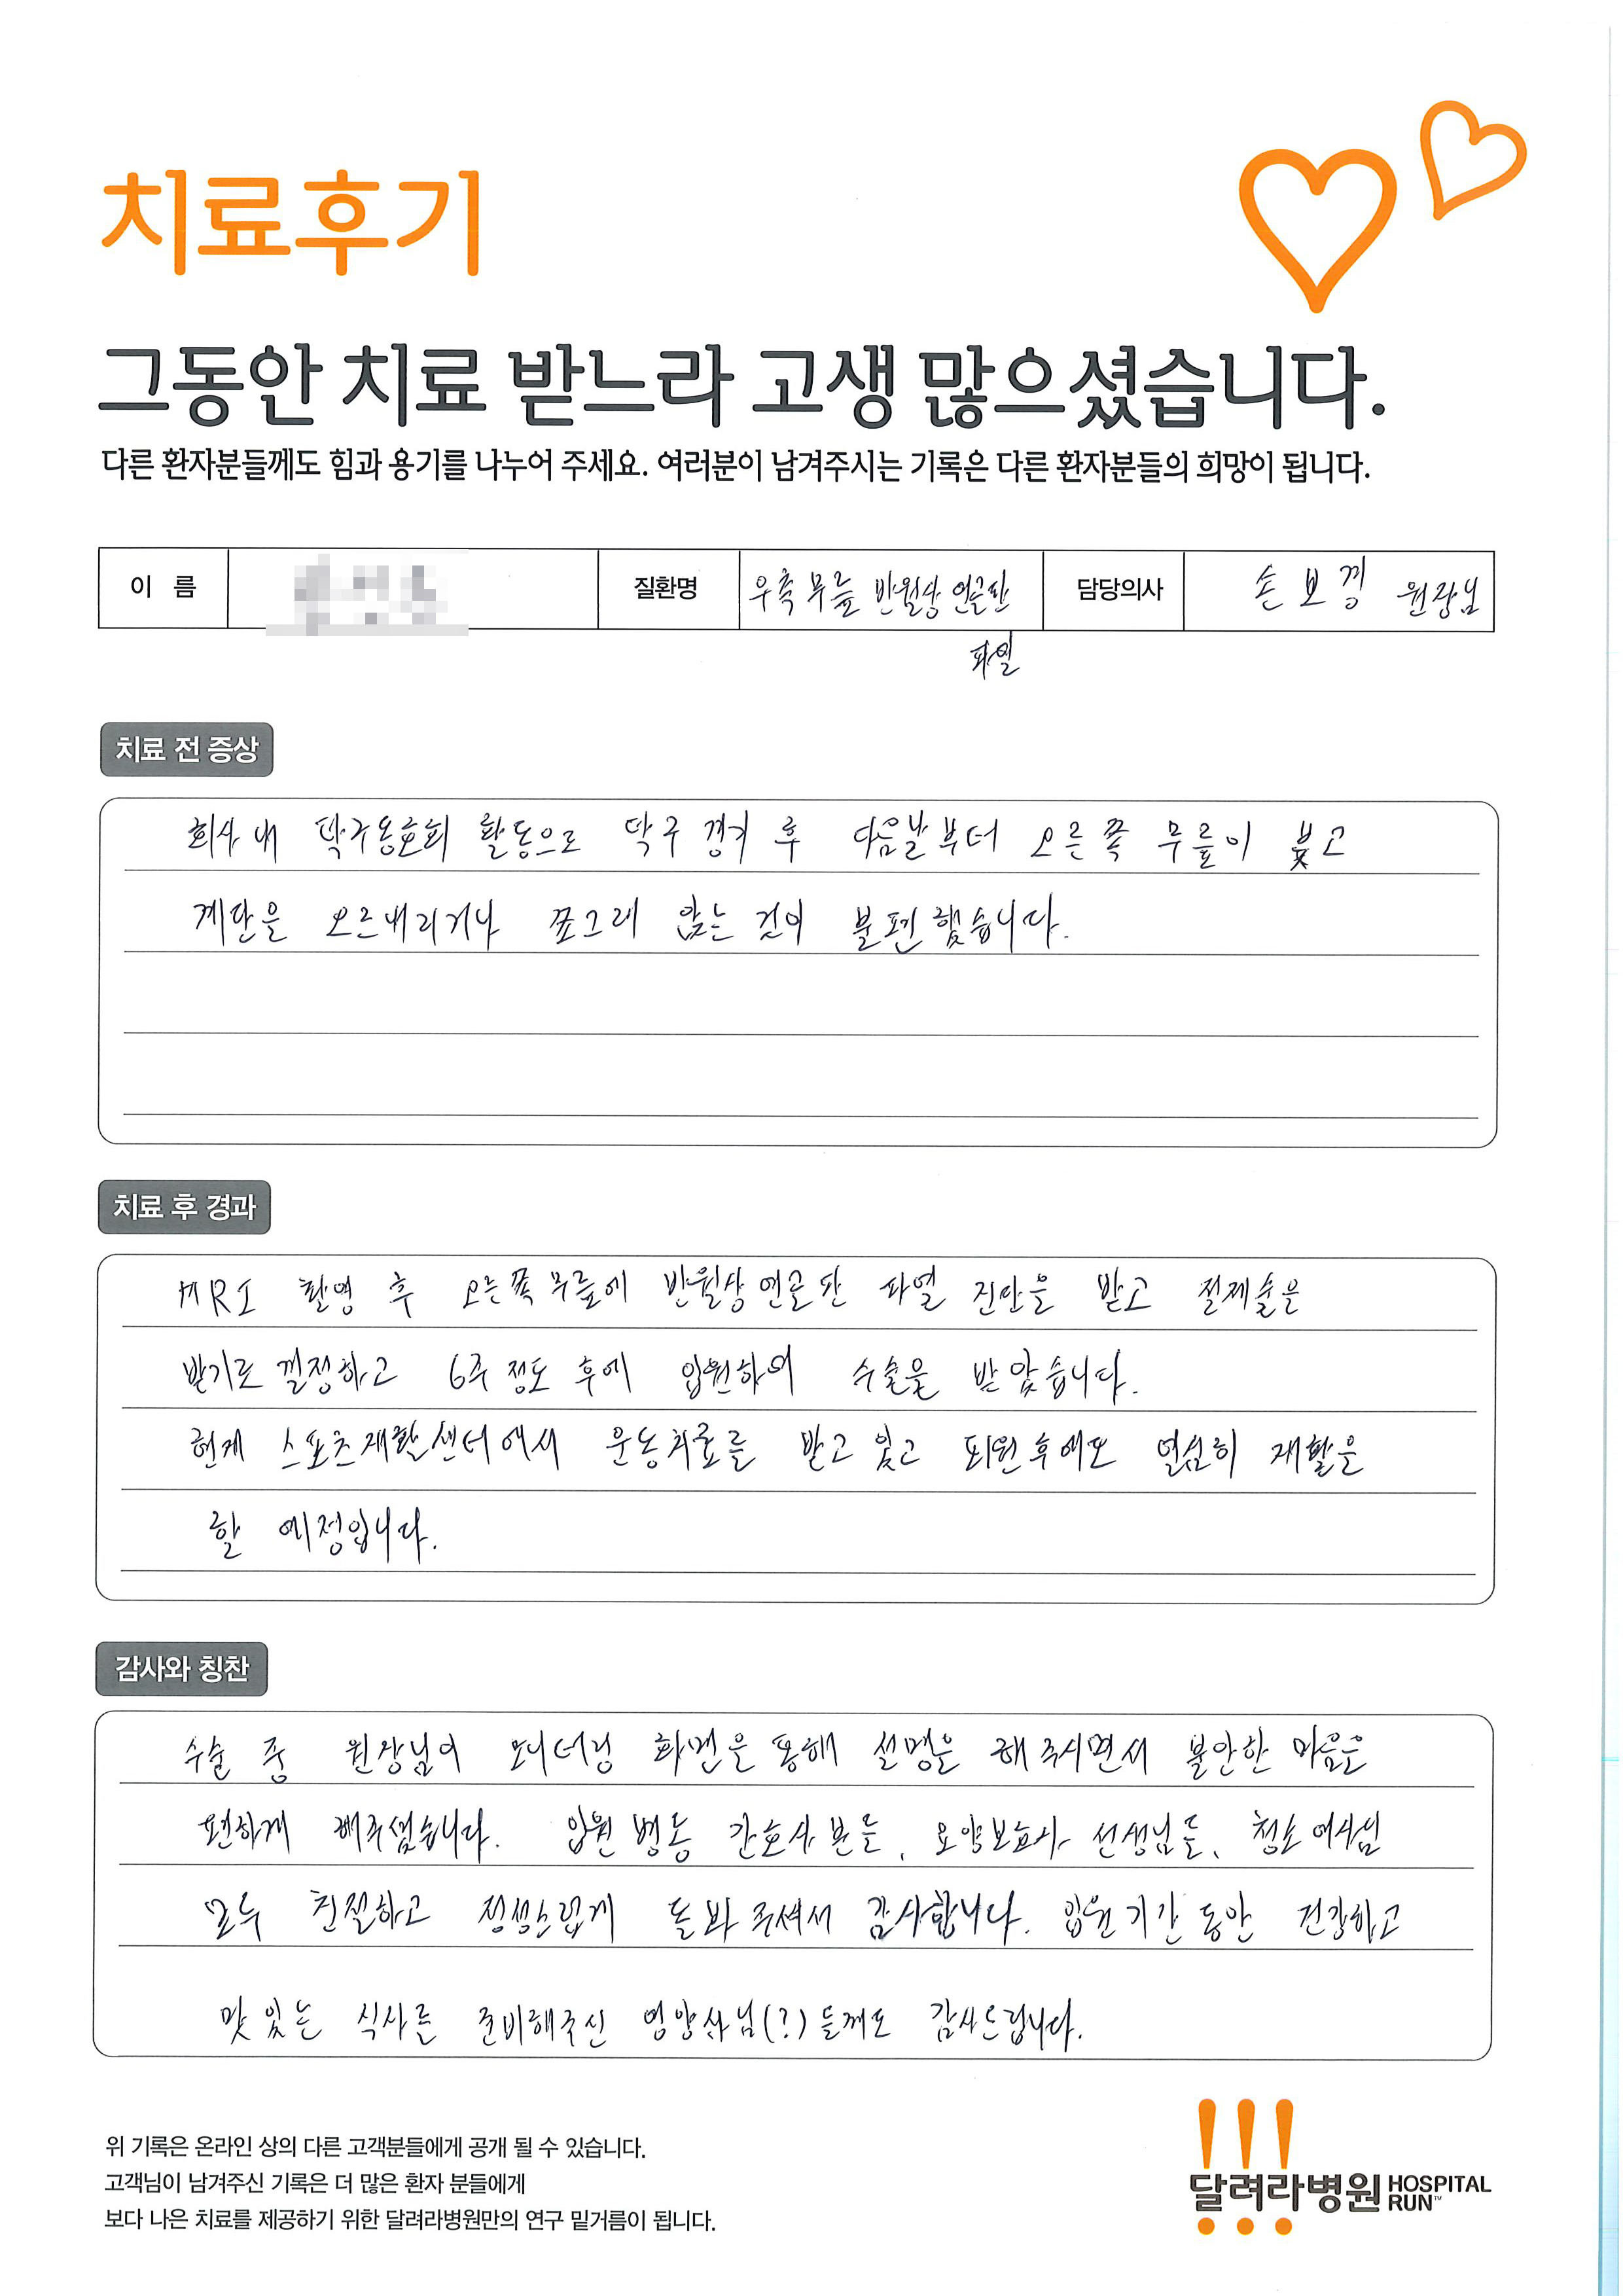 치료후기
그동안 치료 받느라 고생 많으셨습니다.
다른 환자분들께도 힘과 용기를 나누어 주세요. 여러분이 남겨주시는 기록은 다른 환자분들의 희망이 됩니다.
이 름 질환명 우측 무릎 반월상 연골판 담당의사 손보경 원장님
파열
치료 전 증상
회사 내 탁구동호회 활동으로 탁구 경기 후 다음날부터 오른쪽 무릎이 붓고
계단을 오르내리거나 쪼그려 앉는 것이 불편했습니다.
치료 후 경과
MRI 촬영 후 오른쪽 무릎에 반월상 연골판 파열 진단을 받고 절제술을
받기로 결정하고 6주 정도 후에 입원하여 수술을 받았습니다.
현재 스포츠재활센터에서 운동치료를 받고 있고 퇴원 후에도 열심히 재활을
할 예정입니다.
감사와 칭찬
수술 중 원장님이 모니터링 화면을 통해 설명을 해 주시면서 불안한 마음을
편하게 해주셨습니다. 입원 병동 간호사 분들, 요양보호사 선생님들, 청소 여사님
모두 친절하고 정성스럽게 돌봐 주셔서 감사합니다. 입원 기간 동안 건강하고
맛있는 식사를 준비해주신 영양사님(?)들께도 감사드립니다.
위 기록은 온라인 상의 다른 고객분들에게 공개 될 수 있습니다.
고객님이 남겨주신 기록은 더 많은 환자 분들에게
보다 나은 치료를 제공하기 위한 달려라병원만의 연구 밑거름이 됩니다.
달려라병원 HOSPITAL RUN™